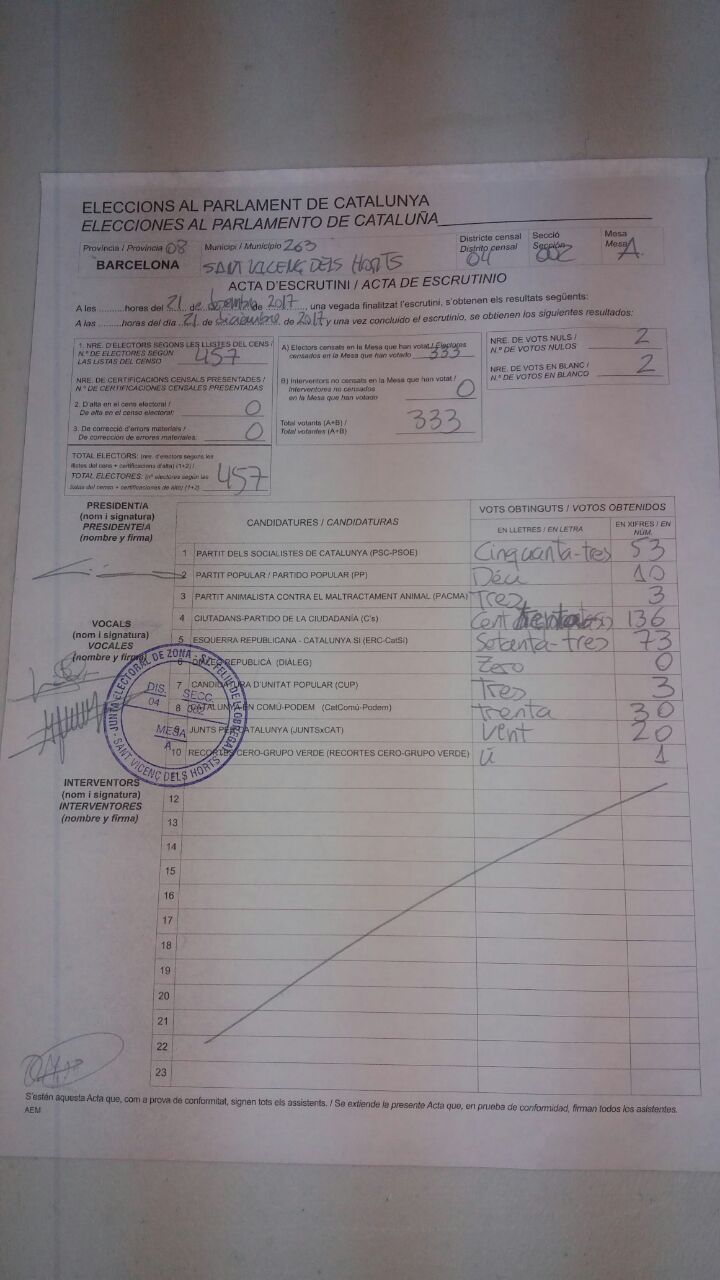 ELECCIONS AL PARLAMENT DE CATALUNYA
ELECCIONES AL PARLAMENTO DE CATALUÑA
Província / Provincia 08 Municipi / Municipio 263 Districte censal Secció Mesa
Distrito censal Sección Mesa
BARCELONA SANT VICENÇ DELS HORTS 04 002 A
ACTA D'ESCRUTINI / ACTA DE ESCRUTINIO
A les ..........hores del 21 de desembre de 2017, una vegada finalitzat l'escrutini, s'obtenen els resultats següents:
A las ..........horas del día 21 de diciembre de 2017 y una vez concluido el escrutinio, se obtienen los siguientes resultados:
1. NRE. D'ELECTORS SEGONS LES LLISTES DEL CENS /
N.º DE ELECTORES SEGÚN
LAS LISTAS DEL CENSO 457
NRE. DE CERTIFICACIONS CENSALS PRESENTADES /
N.º DE CERTIFICACIONES CENSALES PRESENTADAS
2. D'alta en el cens electoral /
De alta en el censo electoral: 0
3. De correcció d'errors materials /
De corrección de errores materiales: 0
TOTAL ELECTORS: (nre. d'electors segons les
llistes del cens + certificacions d'alta) (1+2) /
TOTAL ELECTORES: (nº electores según las
listas del censo + certificaciones de alta) (1+2) 457
A) Electors censats en la Mesa que han votat / Electores
censados en la Mesa que han votado 333
B) Interventors no censats en la Mesa que han votat /
Interventores no censados
en la Mesa que han votado 0
Total votants (A+B) /
Total votantes (A+B) 333
NRE. DE VOTS NULS /
N.º DE VOTOS NULOS 2
NRE. DE VOTS EN BLANC /
N.º DE VOTOS EN BLANCO 2
PRESIDENT/A
(nom i signatura)
PRESIDENTE/A
(nombre y firma)
CANDIDATURES / CANDIDATURAS
VOTS OBTINGUTS / VOTOS OBTENIDOS
EN LLETRES / EN LETRA
EN XIFRES / EN
NÚM.
1 PARTIT DELS SOCIALISTES DE CATALUNYA (PSC-PSOE) Cinquanta-tres 53
2 PARTIT POPULAR / PARTIDO POPULAR (PP) Déu 10
3 PARTIT ANIMALISTA CONTRA EL MALTRACTAMENT ANIMAL (PACMA) Tres 3
4 CIUTADANS-PARTIDO DE LA CIUDADANÍA (C's) Cent 136
5 ESQUERRA REPUBLICANA - CATALUNYA SÍ (ERC-CatSí) Setanta-tres 73
6 DIÀLEG REPUBLICÀ (DIÀLEG) Zero 0
7 CANDIDATURA D'UNITAT POPULAR (CUP) Tres 3
8 CATALUNYA EN COMÚ-PODEM (CatComú-Podem) trenta 30
9 JUNTS PER CATALUNYA (JUNTSxCAT) Vent 20
10 RECORTES CERO-GRUPO VERDE (RECORTES CERO-GRUPO VERDE) Ú 1
VOCALS
(nom i signatura)
VOCALES
(nombre y firma)
JUNTA ELECTORAL DE ZONA - ST FELIU DE LLOBREGAT
SANT VICENÇ DELS HORTS
DIS. SECC.
04 002
MESA
A
INTERVENTORS
(nom i signatura)
INTERVENTORES
(nombre y firma)
12
13
14
15
16
17
18
19
20
21
22
23
S'estén aquesta Acta que, com a prova de conformitat, signen tots els assistents. / Se extiende la presente Acta que, en prueba de conformidad, firman todos los asistentes.
AEM